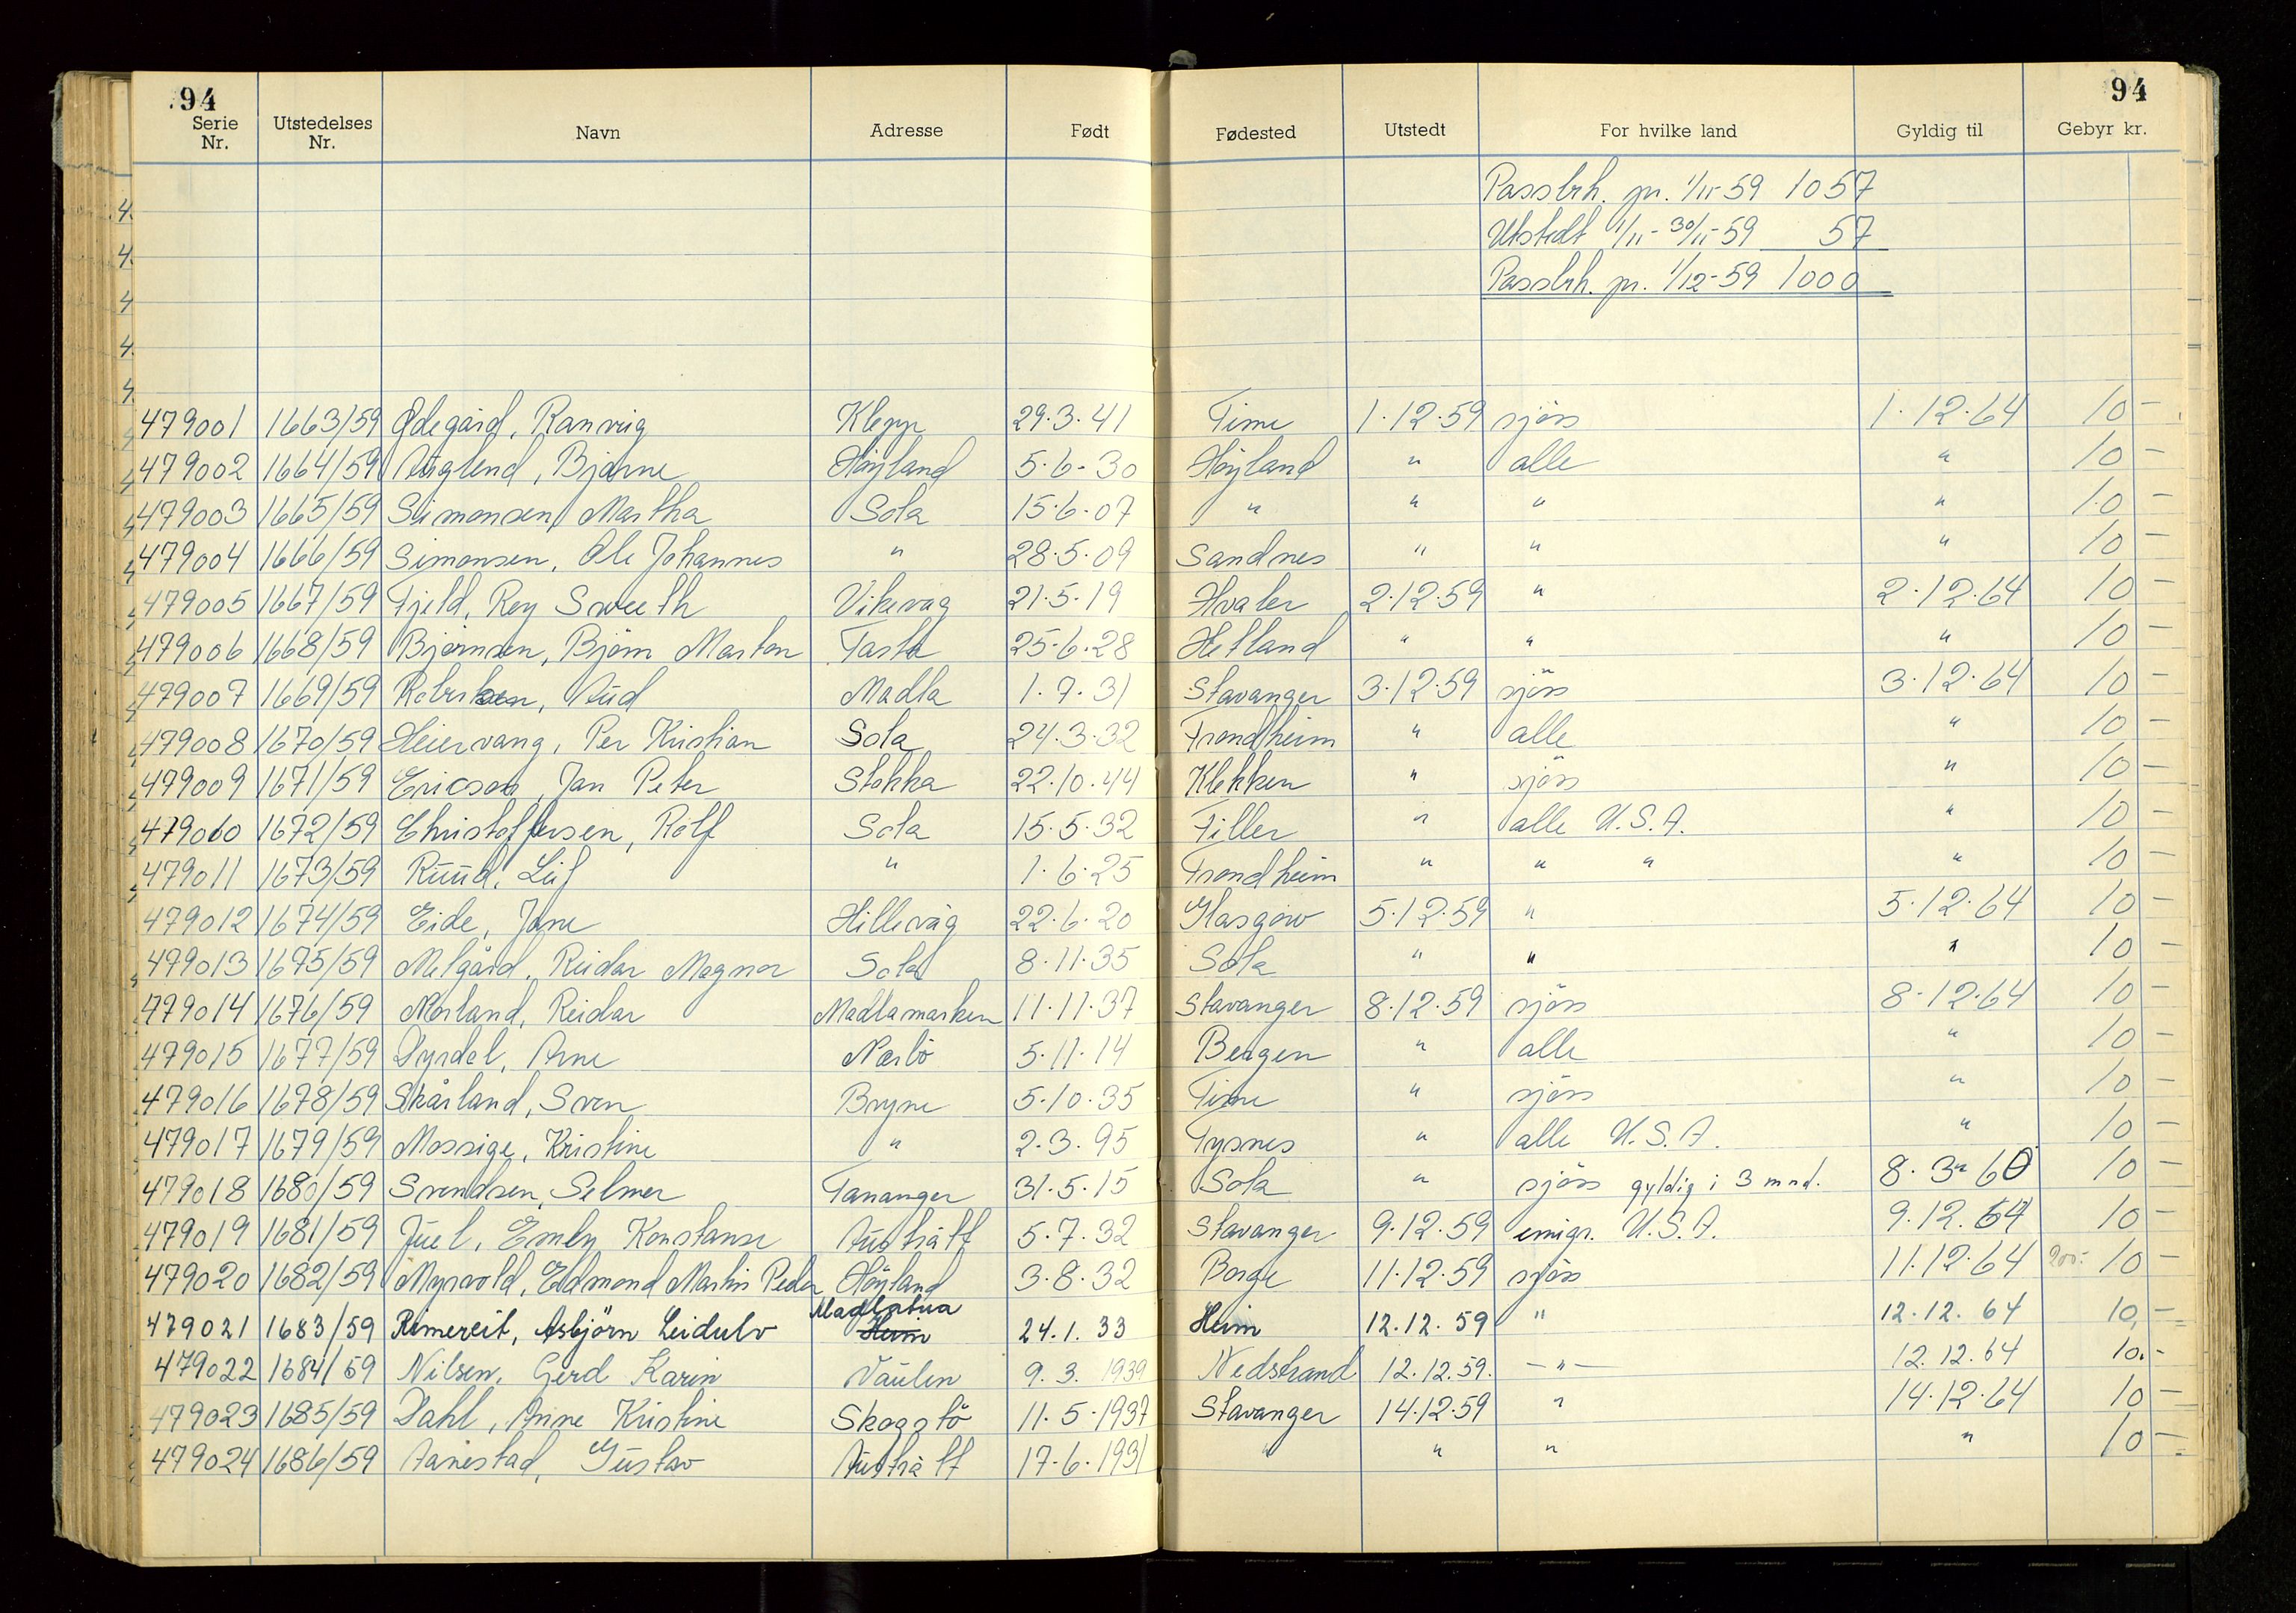 94 94
Serie Nr. Utstedelses Nr. Navn Adresse Født Fødested Utstedt For hvilke land Gyldig til Gebyr kr.
Passbh. pr. 1/11-59 1057
Utstedt 1/11-30/11-59 57
Passbh. pr. 1/12-59 1000
479001 1663/59 Ødegård, Ranveig Klepp 29.3.41 Time 1.12.59 sjöss 1.12.64 10 -
479002 1664/59 Auglend, Bjarne Höyland 5.6.30 Höyland " alle " 10 -
479003 1665/59 Simonsen, Martha Sola 15.6.07 " " " " 10 -
479004 1666/59 Simonsen, Ole Johannes " 28.5.09 Sandnes " " " 10 -
479005 1667/59 Fjeld, Roy Vikevåg 21.5.19 Hvaler 2.12.59 " 2.12.64 10 -
479006 1668/59 Björnsen, Björn Marton Tasta 25.6.28 Hetland " " " 10 -
479007 1669/59 Aud Madla 1.7.31 Stavanger 3.12.59 sjöss 3.12.64 10 -
479008 1670/59 Heiervang, Per Kristian Sola 24.3.32 Trondheim " alle " 10 -
479009 1671/59 Ericson, Jan Peter Stokka 22.10.44 Klekken " sjöss " 10 -
479010 1672/59 Christoffersen, Rolf Sola 15.5.32 Tiller " alle U.S.A. " 10 -
479011 1673/59 Ruud, Leif " 1.6.25 Trondheim " " " " 10 -
479012 1674/59 Eide, Jane Hillevåg 22.6.20 Glasgow 5.12.59 " 5.12.64 10 -
479013 1675/59 Melgård, Reidar Magnar Sola 8.11.35 Sola " " " 10 -
479014 1676/59 Mosland, Reidar Madlamarken 11.11.37 Stavanger 8.12.59 sjöss 8.12.64 10 -
479015 1677/59 Dyrdal, Arne Nærbö 5.11.14 Bergen " alle " 10 -
479016 1678/59 Skårland, Sven Bryne 5.10.35 Time " sjöss " 10 -
479017 1679/59 Mossige, Kristine " 2.3.95 Tysnes " alle U.S.A. " 10 -
479018 1680/59 Svendsen, Selmer Tananger 31.5.15 Sola " sjöss gyldig i 3 mnd. 8.3.60 10 -
479019 1681/59 Juel, Emly Konstanse Austrått 5.7.32 Stavanger 9.12.59 emigr. U.S.A. 9.12.64 10 -
479020 1682/59 Myrvold, Edmond Martin Peder Höyland 3.8.32 Borge 11.12.59 sjöss 11.12.64 200.- 10 -
479021 1683/59 Rimereit, Asbjörn Leidulv Heim Madlatua 24.1.33 Heim 12.12.59 " 12.12.64 10,-
479022 1684/59 Nilsen, Gerd Karin Vaulen 9.3.1939 Nedstrand 12.12.59. -"- 12.12.64 10.-
479023 1685/59 Dahl, Anne Kristine Skeggstö 11.5.1937 Stavanger 14.12.59 " 14.12.64 10 -
479024 1686/59 Aanestad, Gustav Austrått 17.6.1931 " " " " 10 -